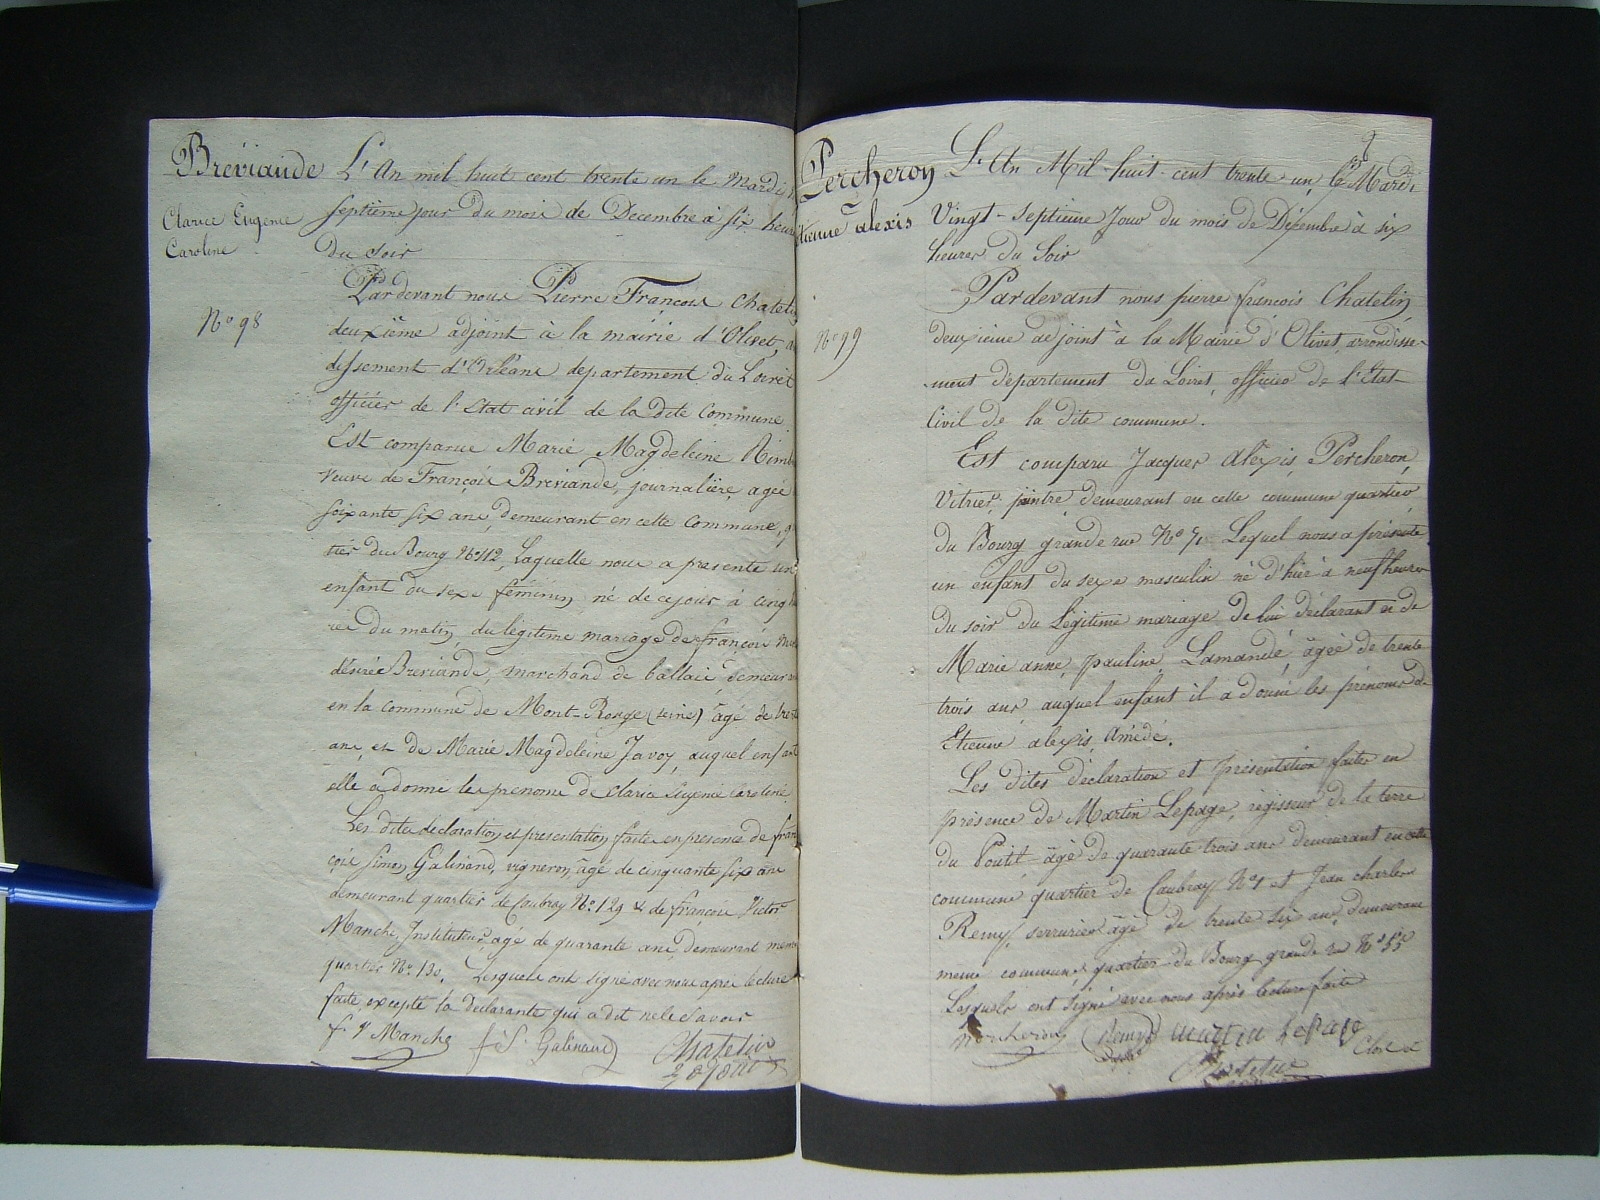 Breviande
Clarice Eugenie
Caroline
N° 98
L'An mil huit cent trente un le Mardi
Septieme jour du mois de Decembre à Six heur
Du Soir
Pardevant nous Pierre François Chateli
deuxième adjoint à la mairie d'Olivet, a
dissement d'Orléans departement du Loiret
officier de l'Etat civil de la dite Commune
Est comparue Marie Magdeleine Rimb
Veuve de François Breviande, journalière, agée
soixante six ans, demeurant en cette Commune, q
tier du Bourg N° 112 Laquelle nous a présenté un
enfant du sexe féminin né de cejour à cinq
res du matin, du légitime mariage de françois
désirée Breviande, marchand de ballais demeur
en la commune de Mont-Rouge (seine) agé de
ans, et de Marie Magdeleine Javoy, auquel enfant
elle a donné les prenoms de Claric Eugenie Caroline
Les dites declaration et presentation faites en presence de fran
çois Simon Galinand, vigneron, agé de cinquante six ans
demeurant quartier de Caubray N° 129 & de françois Victor
Manche, Instituteur, agé de quarante ans, demeurant meme
quartier N° 130. Lesquels ont signé avec nous après lecture
faite, excepté la declarante qui a dit ne le Savoir
f. V Manche f. S. Galinand Chatelin
2e adjoint
Percheron
tienne alexis
N° 99
L'An Mil huit cent trente un, le Mardi
Vingt-Septieme Jour du mois de Décembre à six
heures du Soir
Pardevant nous pierre françois Chatelin,
deuxieme adjoint à la Mairie d'Olivet, arrondisse-
-ment département du Loiret, officier de l'Etat-
Civil de la dite commune.
Est comparu Jacques Alexis Percheron,
Vitrier, peintre, demeurant en cette commune quartier
du Bourg grande rue N° Lequel nous a présenté
un enfant du sexe masculin né d'hier à neuf heures
du soir du Légitime mariage de lui déclarant et de
Marie anne, pauline, Lamandé, agée de trente
trois ans, auquel enfant il a donné les prénoms de
Etienne alexis, Amédé.
Les dites déclaration et présentation faites en
présence de Martin Lepage, régisseur de la terre
du Poutil agé de quarante-trois ans demeurant en cette
commune quartier de Caubray N° 1 et Jean charles
Remy, serrurier agé de trente six ans, demeurant
meme commune, quartier du Bourg grande rue N° 55
Lesquels ont signé avec nous après lecture faite
Percheron Remy martin Lepage
Chatelin
Clos a